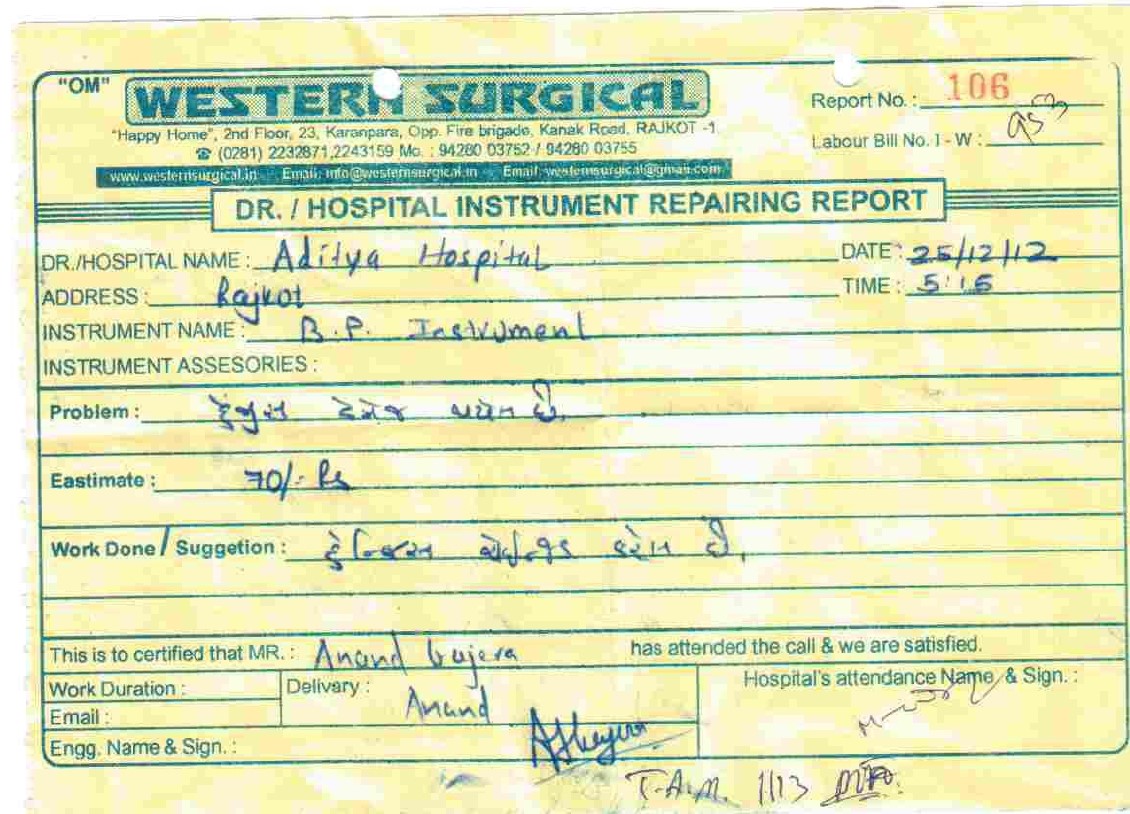 "OM"
WESTERN SURGICAL
"Happy Home", 2nd Floor, 23, Karanpara, Opp. Fire brigade, Kanak Road, RAJKOT -1
☎ (0281) 2232871,2243159 Mo. : 94280 03752 / 94280 03755
www.westernsurgical.in Email: info@westernsurgical.in Email: westernsurgical@gmail.com
Report No. : 106
Labour Bill No. I - W :
DR. / HOSPITAL INSTRUMENT REPAIRING REPORT
DR./HOSPITAL NAME : Aditya Hospital DATE : 25/12/12
ADDRESS : Rajkot TIME : 5:15
INSTRUMENT NAME : B.P. Instrument
INSTRUMENT ASSESORIES :
Problem : ડેમેજ થયેલ છે.
Eastimate : 70/- Rs
Work Done / Suggetion : ચેઈન્જ કરેલ છે.
This is to certified that MR. : Anand Gajera has attended the call & we are satisfied.
Work Duration : Delivary : Anand Hospital's attendance Name & Sign. :
Email :
Engg. Name & Sign. :
T.A.M. 1113